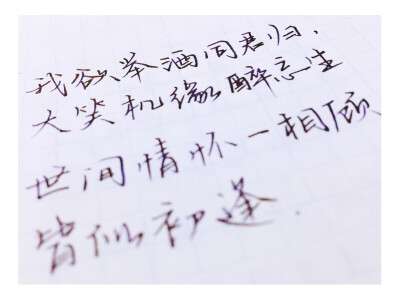 我欲举酒同君归，
大笑机缘醉忘生
世间情怀一相顾
皆似初逢.